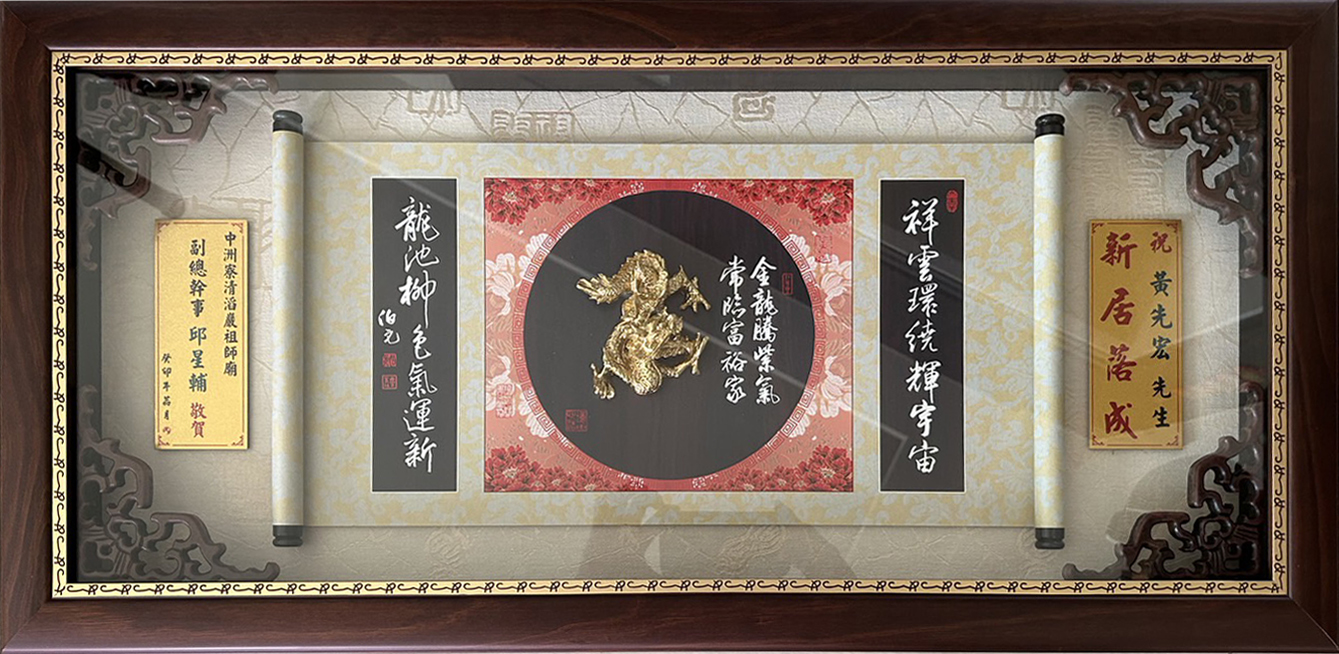 祝 黃先宏 先生
新居落成
祥雲環繞輝宇宙
金龍騰紫氣
常臨富裕家
龍池柳色氣運新
伯元
中洲寮清滔巖祖師廟
副總幹事 邱星輔 敬賀
癸卯年 月